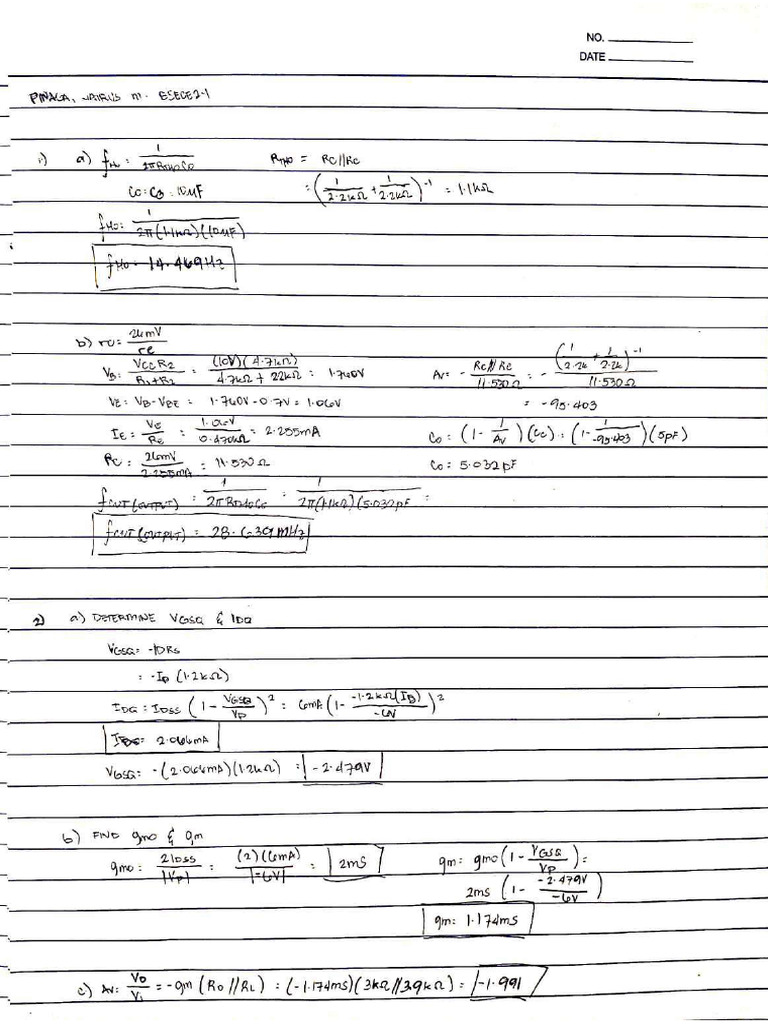 NO.
DATE
PINAGA, JAIRUS M. BSECE2-1
1) a) fHo = 1/2πRTHoCo RTHo = RC//RC
Co = CB = 10μF = (1/2.2kΩ + 1/2.2kΩ)^-1 = 1.1kΩ
fHo = 1/2π(1.1kΩ)(10μF)
fHo = 14.469Hz
b) re = 26mV/re
VB = VCCR2/R1+R2 = (10V)(4.7kΩ)/4.7kΩ+22kΩ = 1.760V Av = - RC//RC/11.530Ω = - (1/2.2k + 1/2.2k)^-1/11.530Ω
VE = VB-VBE = 1.760V-0.7V = 1.06V = -95.403
IE = VE/RE = 1.06V/0.470kΩ = 2.255mA Co = (1 - 1/Av)(CC) = (1 - 1/-95.403)(5pF)
RC = 26mV/2.255mA = 11.530Ω Co = 5.032pF
fCUT(OUTPUT) = 1/2πRTHoCo = 1/2π(1.1kΩ)(5.032pF =
fCUT(OUTPUT) = 28.639MHz
2) a) DETERMINE VGSQ & IDQ
VGSQ = -IDRS
= -ID (1.2kΩ)
IDQ = IDSS (1 - VGSQ/VP)^2 = 6mA(1 - -1.2kΩ(ID)/-6V)^2
IDQ = 2.066mA
VGSQ = -(2.066mA)(1.2kΩ) = -2.479V
b) FIND gmo & gm
gmo = 2IDSS/|VP| = (2)(6mA)/|-6V| = 2mS gm = gmo(1 - VGSQ/VP) =
2mS (1 - -2.479V/-6V)
gm = 1.174mS
c) Av = Vo/Vi = -gm (RD//RL) = (-1.174mS)(3kΩ//3.9kΩ) = -1.991